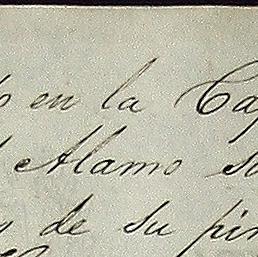 en la Ca
Alamo s
de su pin